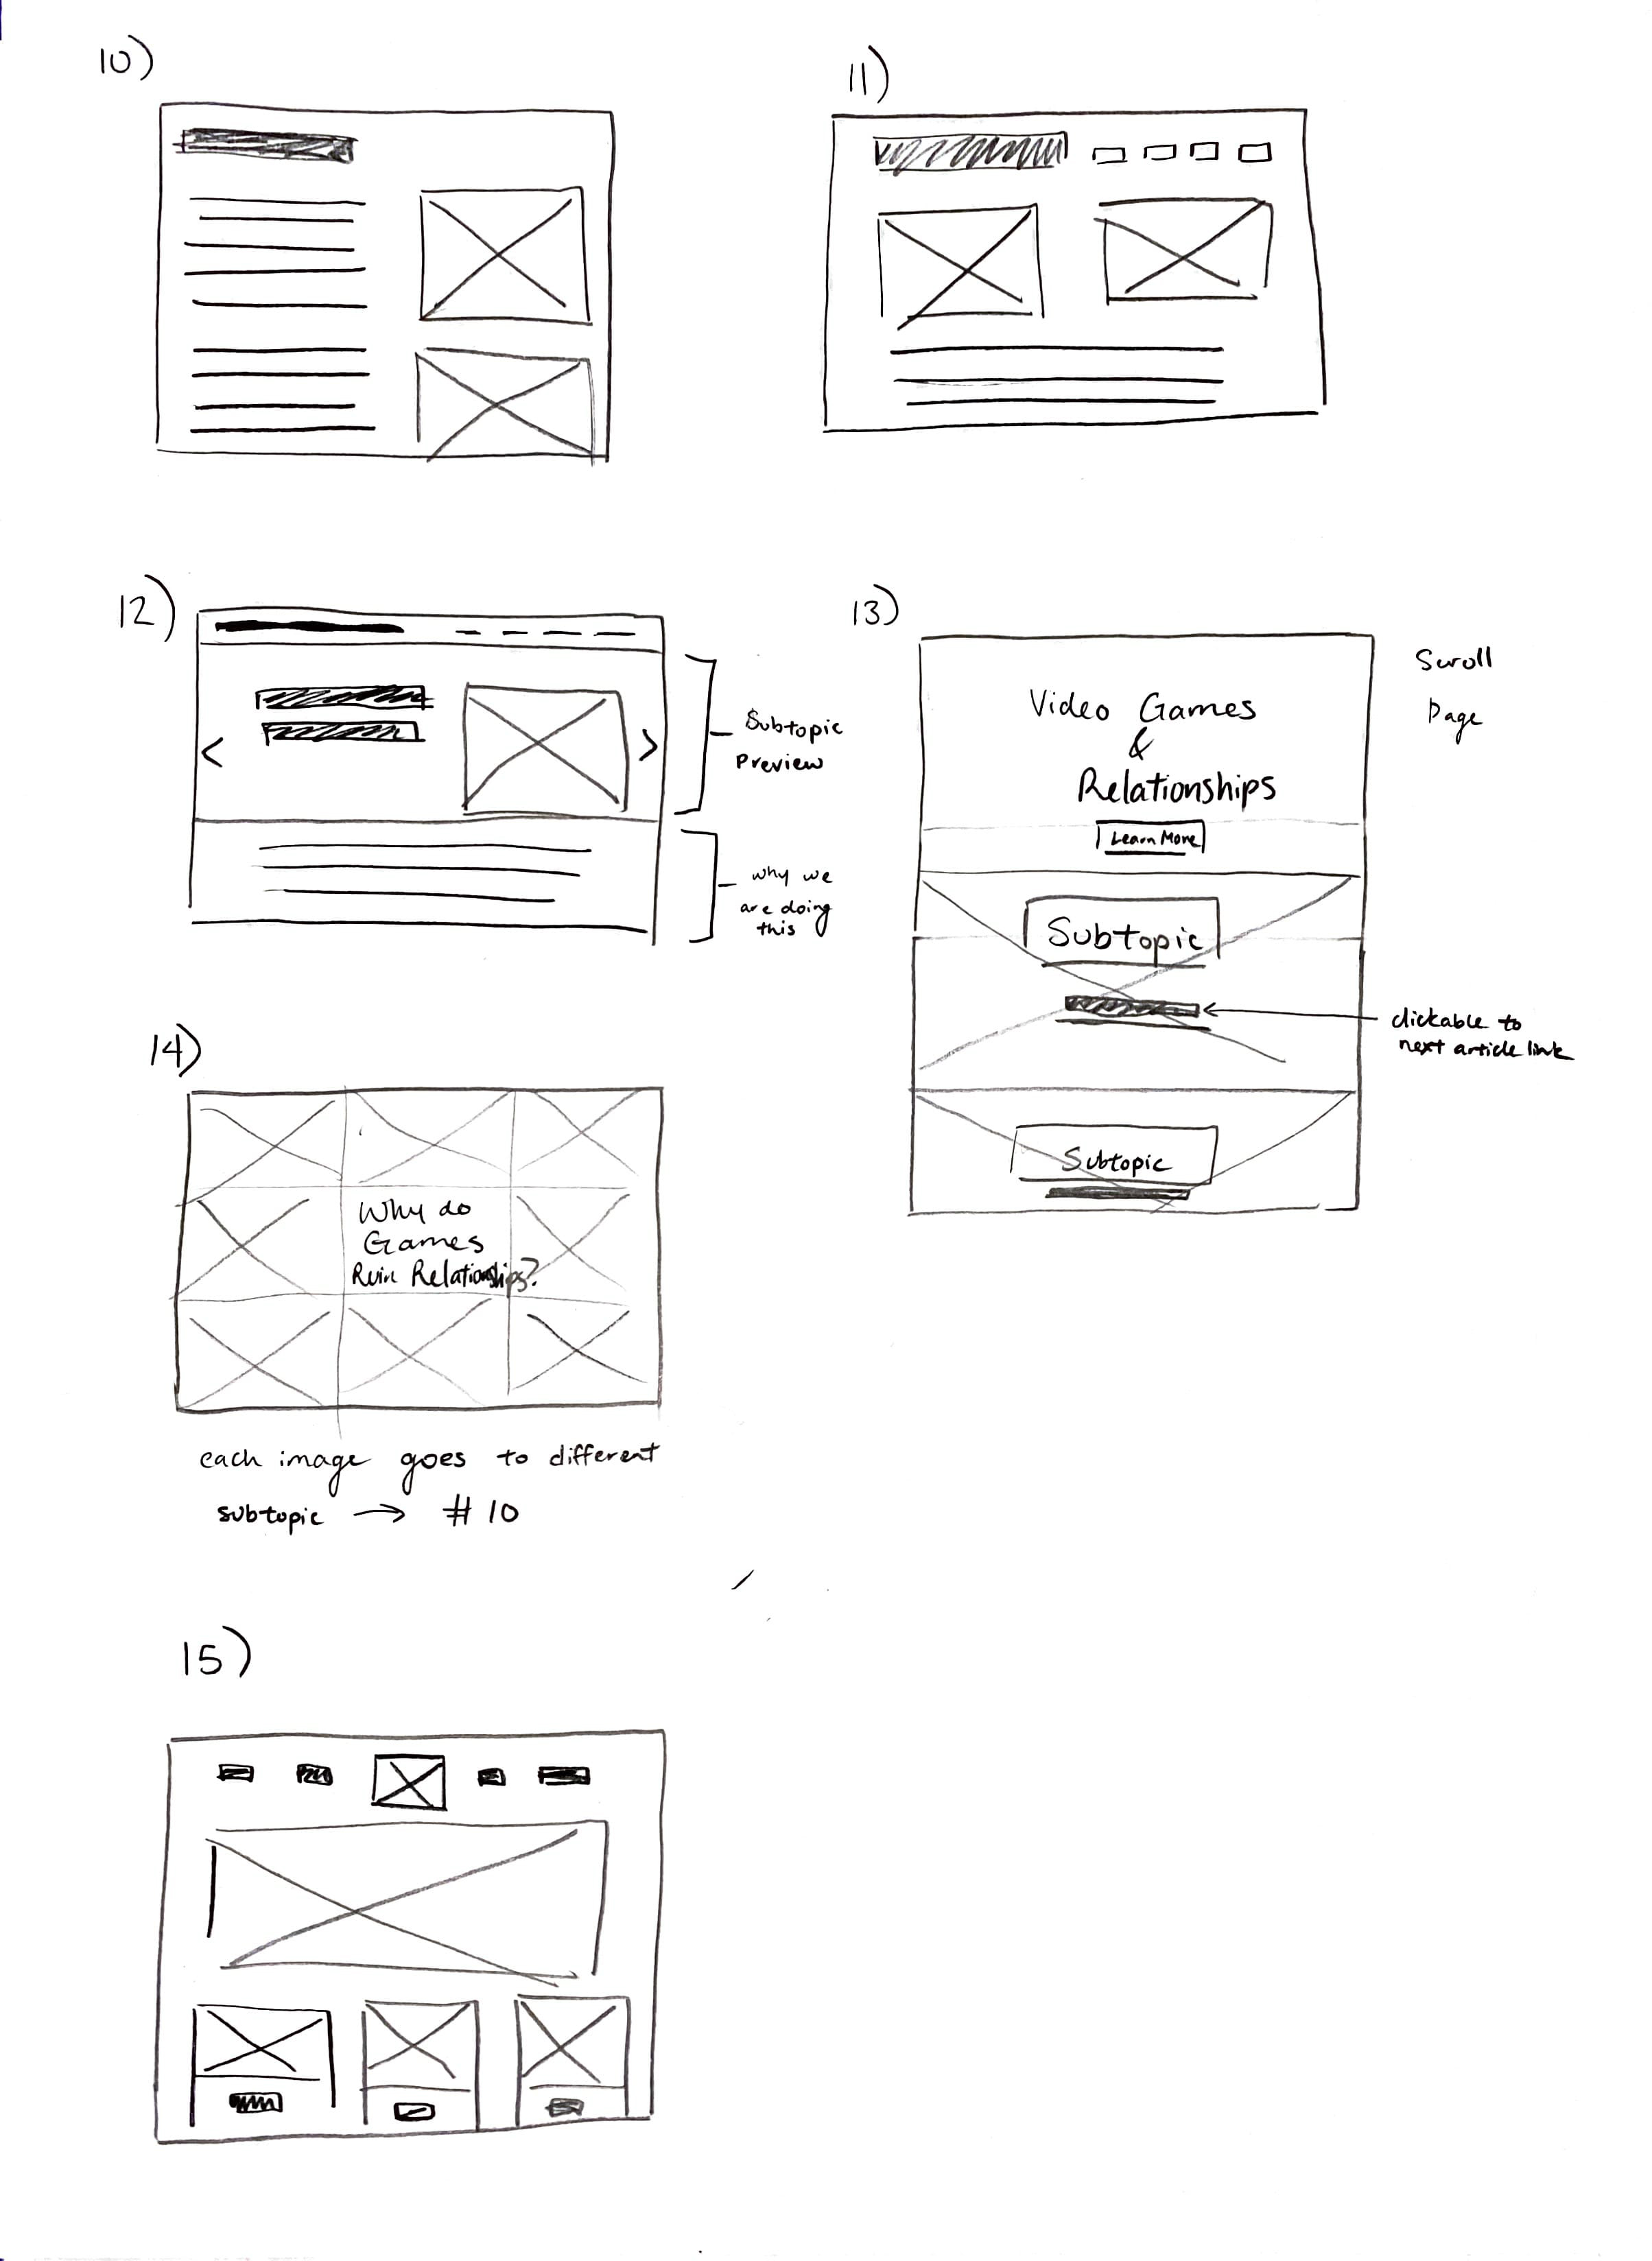 10)
11)
12)
Subtopic
Preview
why we
are doing
this
13)
Scroll
Page
Video Games
&
Relationships
Learn More
Subtopic
clickable to
next article link
Subtopic
14)
Why do
Games
Ruin Relationships?
each image goes to different
subtopic → #10
15)